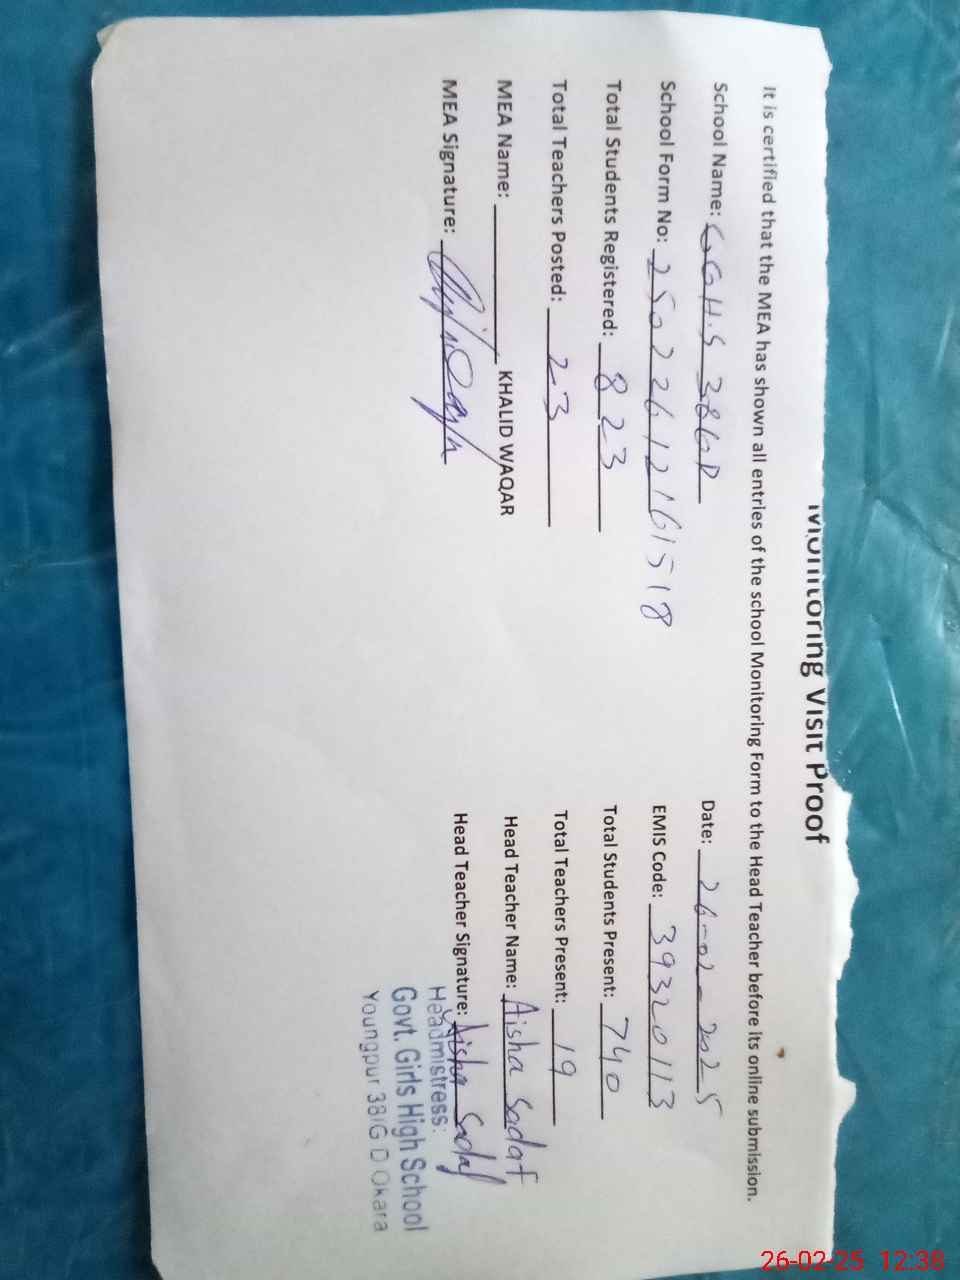 Monitoring Visit Proof
It is certified that the MEA has shown all entries of the school Monitoring Form to the Head Teacher before its online submission.
School Name: GGH.S 38GD Date: 26-02-2025
School Form No: 25022612161518 EMIS Code: 39320113
Total Students Registered: 823 Total Students Present: 740
Total Teachers Posted: 23 Total Teachers Present: 19
MEA Name: KHALID WAQAR Head Teacher Name: Aisha Sadaf
MEA Signature: Head Teacher Signature: Aisha Sadaf
Headmistress:
Govt. Girls High School
Youngpur 38/G D Okara
26-02-25 12:38